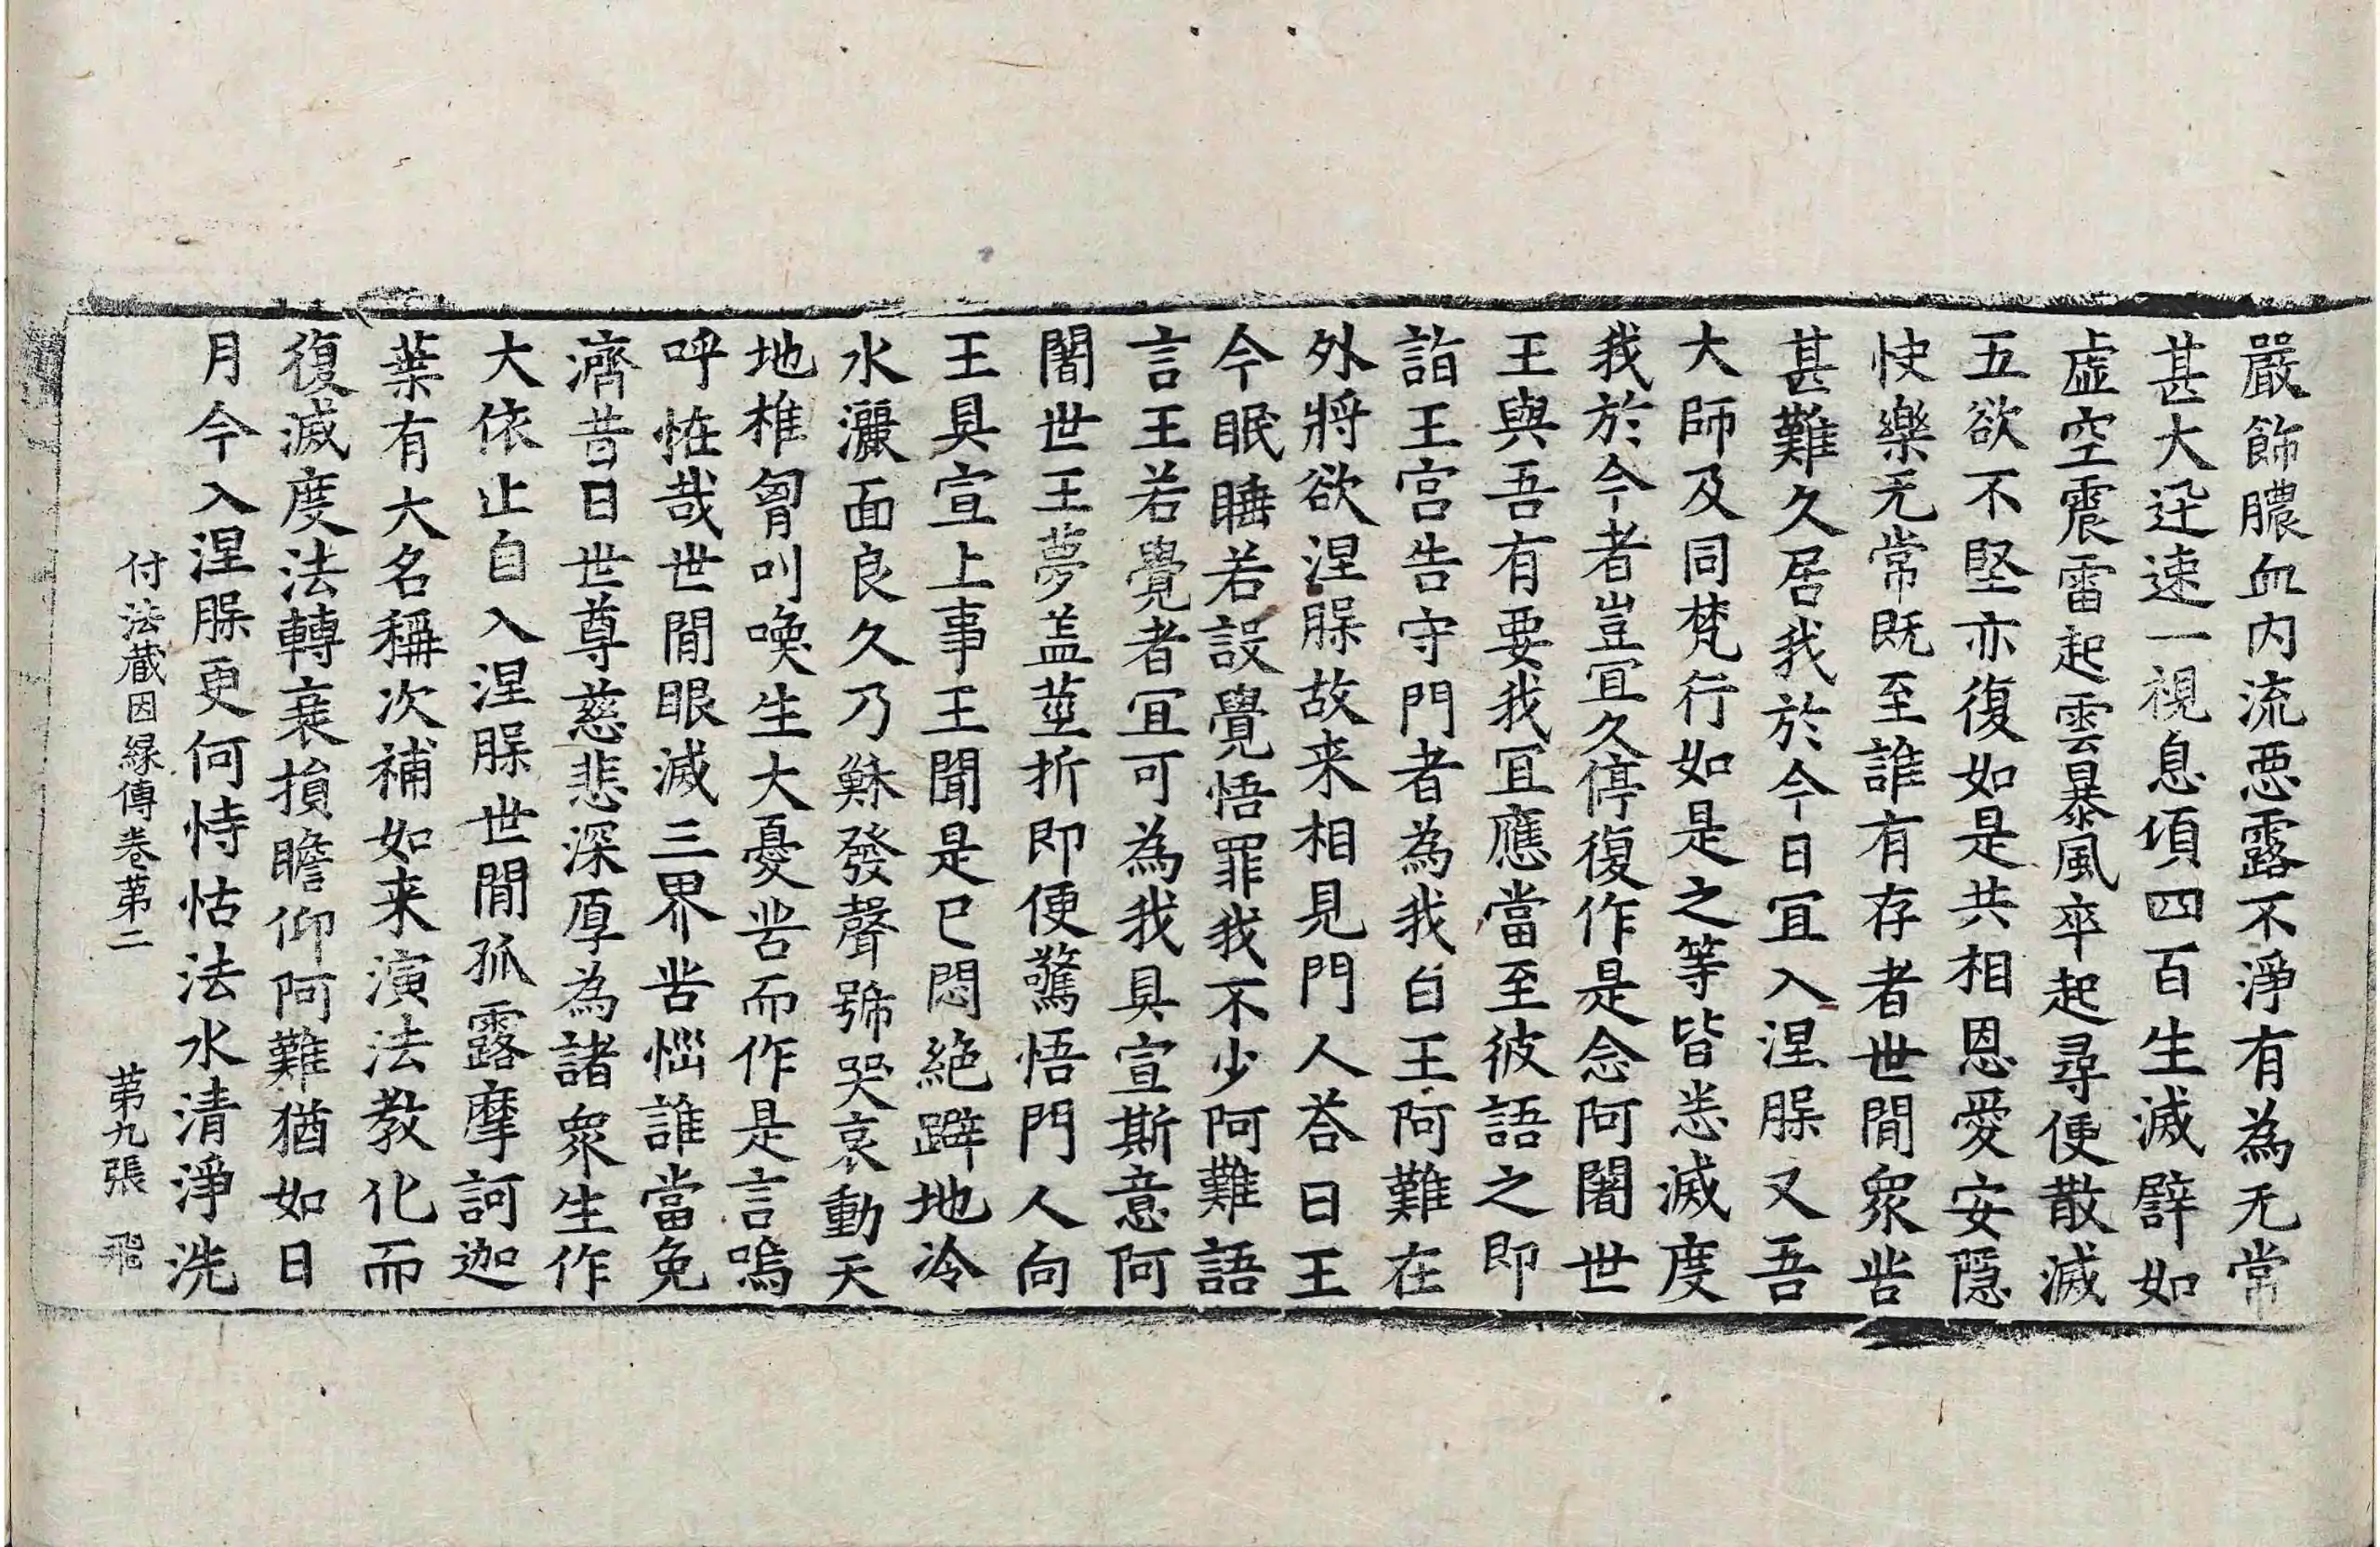 嚴飾膿血内流惡露不淨有為无常
甚大迅速一視息項四百生滅譬如
虛空震雷起雲暴風卒起尋便散滅
五欲不堅亦復如是共相恩愛安隱
快樂无常既至誰有存者世閒衆苦
甚難久居我於今日冝入涅槃又吾
大師及同梵行如是之等皆悉滅度
我於今者豈冝久停復作是念阿闍世
王與吾有要我冝應當至彼語之即
詣王宮告守門者為我白王阿難在
外將欲涅槃故来相見門人荅曰王
今眠睡若設覺悟罪我不少阿難語
言王若覺者冝可為我具宣斯意阿
闍世王夢盖莖折即便驚悟門人向
王具宣上事王聞是已悶絕躃地冷
水灑面良久乃穌發聲號哭哀動天
地椎胷叫喚生大憂苦而作是言嗚
呼恠哉世閒眼滅三界苦惱誰當免
濟昔日世尊慈悲深厚為諸衆生作
大依止自入涅槃世閒孤露摩訶迦
葉有大名稱次補如来演法教化而
復滅度法轉衰損瞻仰阿難猶如日
月今入涅槃更何恃怙法水清淨洗
付法藏因縁傳卷第二 第九張 飛